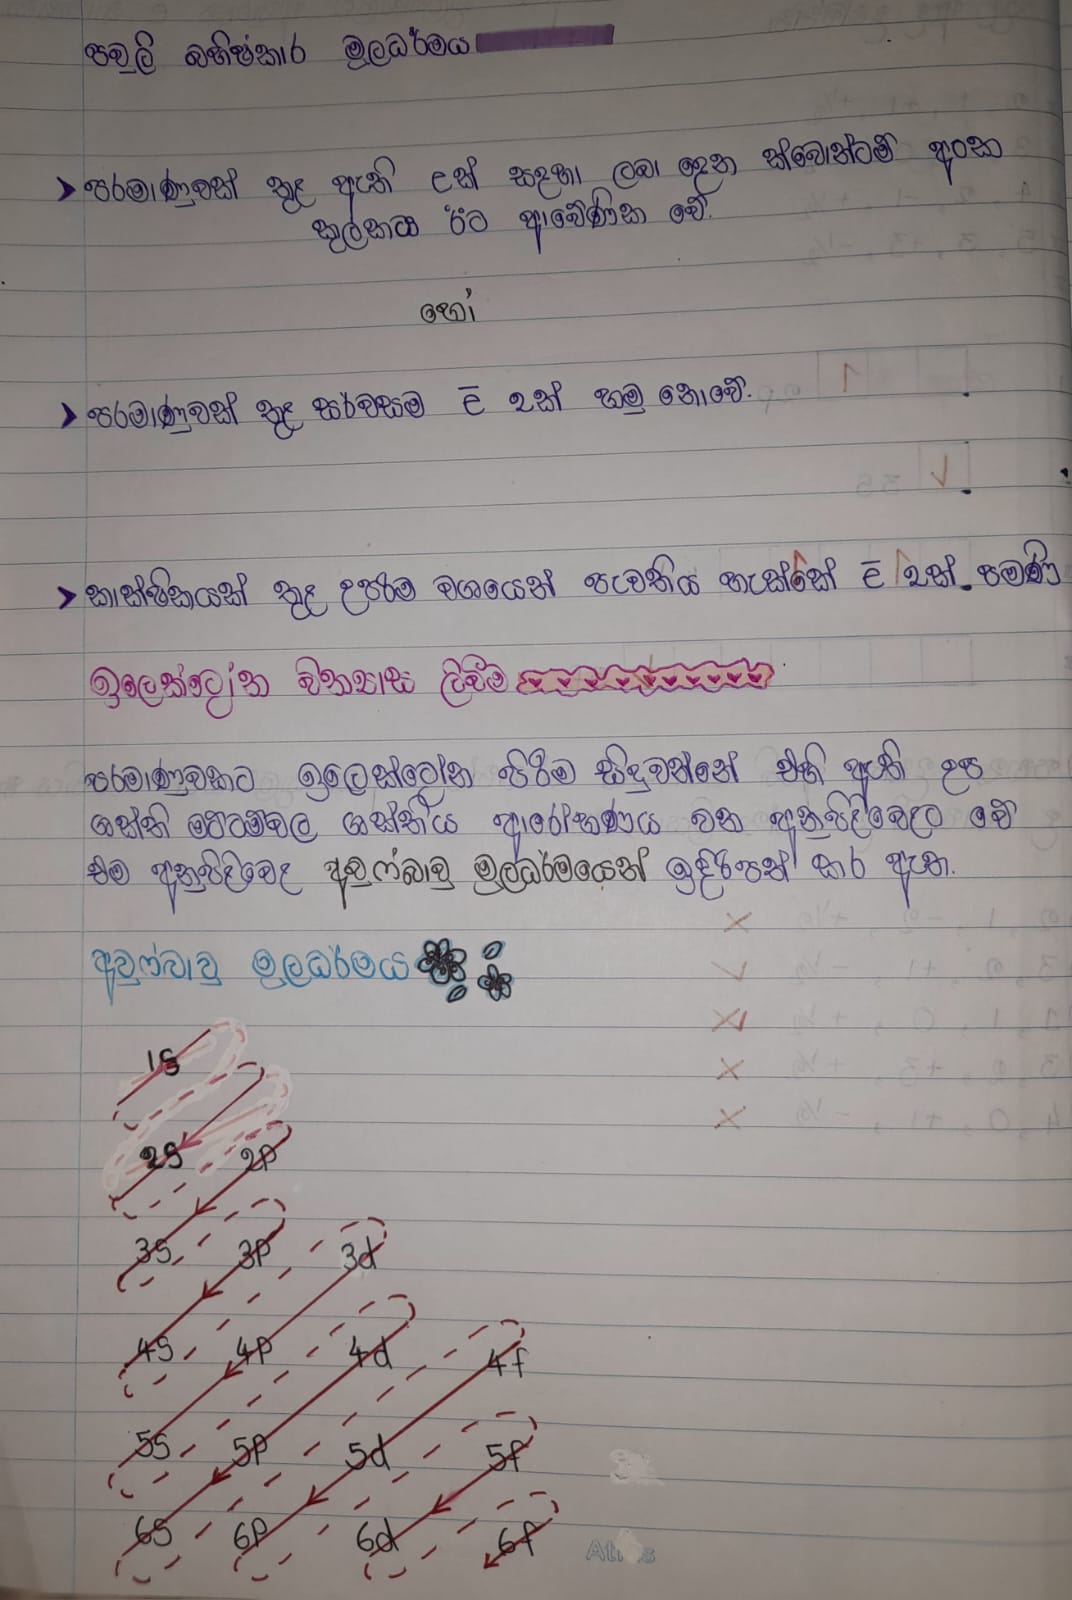 පවුලි බහිෂ්කාර මූලධර්මය
පරමාණුවක් තුළ ඇති e̅ක් සඳහා ලබා දෙන ක්වොන්ටම් අංක
කුලකය ඊට ආවේණික වේ.
හෝ
පරමාණුවක් තුළ සර්වසම e̅ 2ක් හමු නොවේ.
කාක්ෂිකයක් තුළ උපරිම වශයෙන් පැවතිය හැක්කේ e̅ 2ක් පමණි
ඉලෙක්ට්‍රෝන වින්‍යාස ලිවීම
පරමාණුවකට ඉලෙක්ට්‍රෝන පිරීම සිදුවන්නේ එහි ඇති උප
ශක්ති මට්ටම්වල ශක්තිය ආරෝහණය වන අනුපිළිවෙලට වේ
එම අනුපිළිවෙල අවුෆ්බාවු මූලධර්මයෙන් ඉදිරිපත් කර ඇත.
අවුෆ්බාවු මූලධර්මය
1s
2s 2p
3s 3p 3d
4s 4p 4d 4f
5s 5p 5d 5f
6s 6p 6d 6f